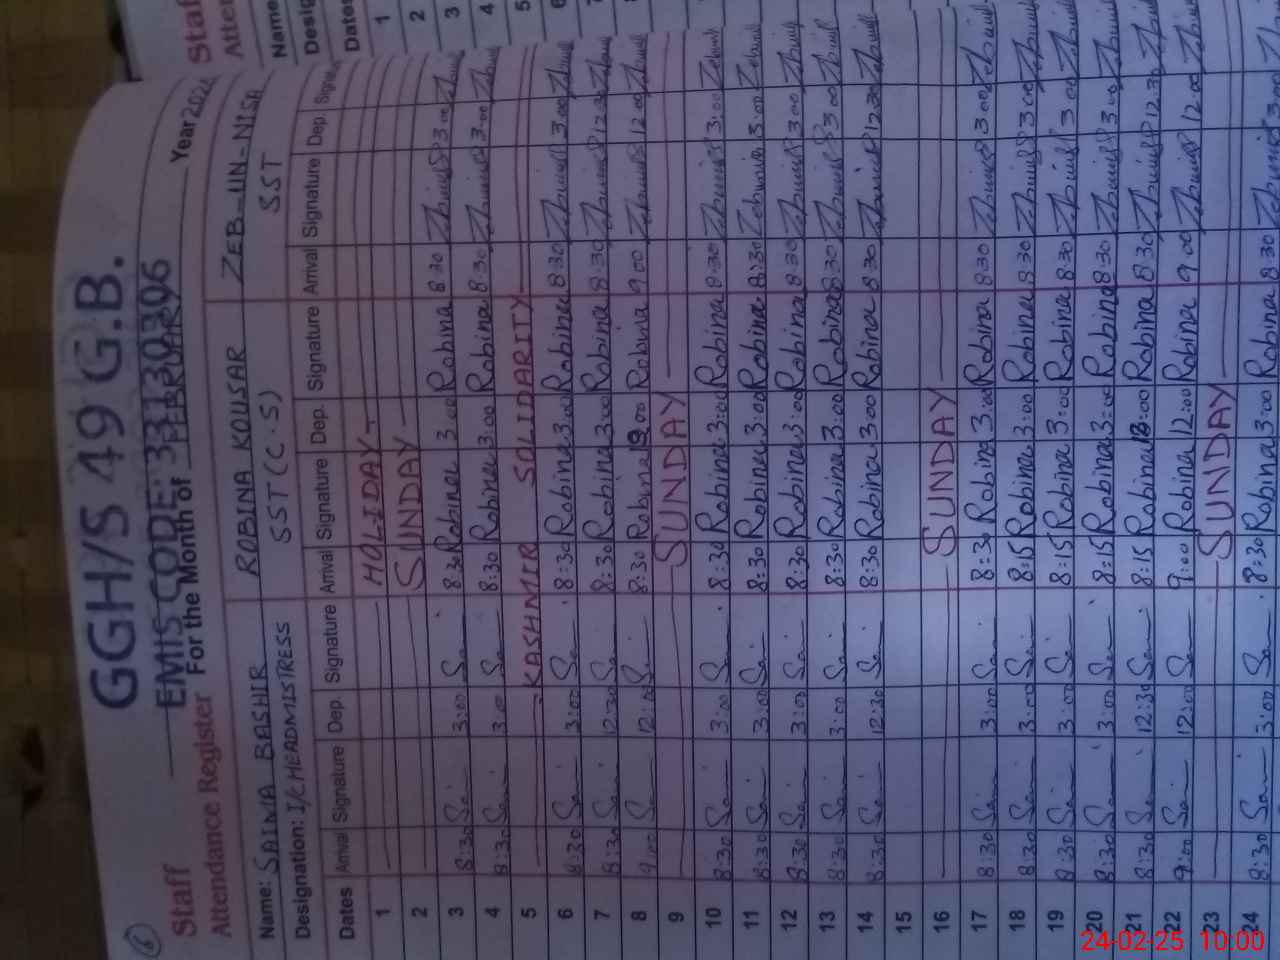 GGH/S 49 G.B.
EMIS CODE: 33130396
6
Staff
Attendance Register
For the Month of FEBRUARY Year
Name: SAIMA BASHIR ROBINA KOUSAR ZEB-UN-NISA
Designation: I/c HEADMISTRESS SST (C.S) SST
Dates Arrival Signature Dep. Signature Arrival Signature Dep. Signature Arrival Signature Dep.
1 HOLIDAY
2 SUNDAY
3 8:30 3:00 8:30 Robina 3:00 Robina 8:30 3:00
4 8:30 3:00 8:30 Robina 3:00 Robina 8:30 3:00
5 KASHMIR SOLIDARITY
6 8:30 3:00 8:30 Robina 3:00 Robina 8:30 3:00
7 8:30 12:30 8:30 Robina 3:00 Robina 8:30 12:30
8 9:00 12:00 8:30 Robina Robina 9:00 12:00
9 SUNDAY
10 8:30 3:00 8:30 Robina 3:00 Robina 8:30 3:00
11 8:30 3:00 8:30 Robina 3:00 Robina 8:30 3:00
12 8:30 3:00 8:30 Robina 3:00 Robina 8:30 3:00
13 8:30 3:00 8:30 Robina 3:00 Robina 8:30 3:00
14 8:30 12:30 8:30 Robina 3:00 Robina 8:30 12:30
15
16 SUNDAY
17 8:30 3:00 8:30 Robina 3:00 Robina 8:30 3:00
18 8:30 3:00 8:15 Robina 3:00 Robina 8:30 3:00
19 8:30 3:00 8:15 Robina 3:00 Robina 8:30 3:00
20 8:30 3:00 8:15 Robina 3:00 Robina 8:30 3:00
21 8:30 12:30 8:15 Robina Robina 8:30 12:30
22 9:00 12:00 9:00 Robina 12:00 Robina 9:00 12:00
23 SUNDAY
24 8:30 3:00 8:30 Robina 3:00 Robina 8:30 3:00
Staff
Name
Dates
1
2
3
4
5
6
24-02-25 10:00